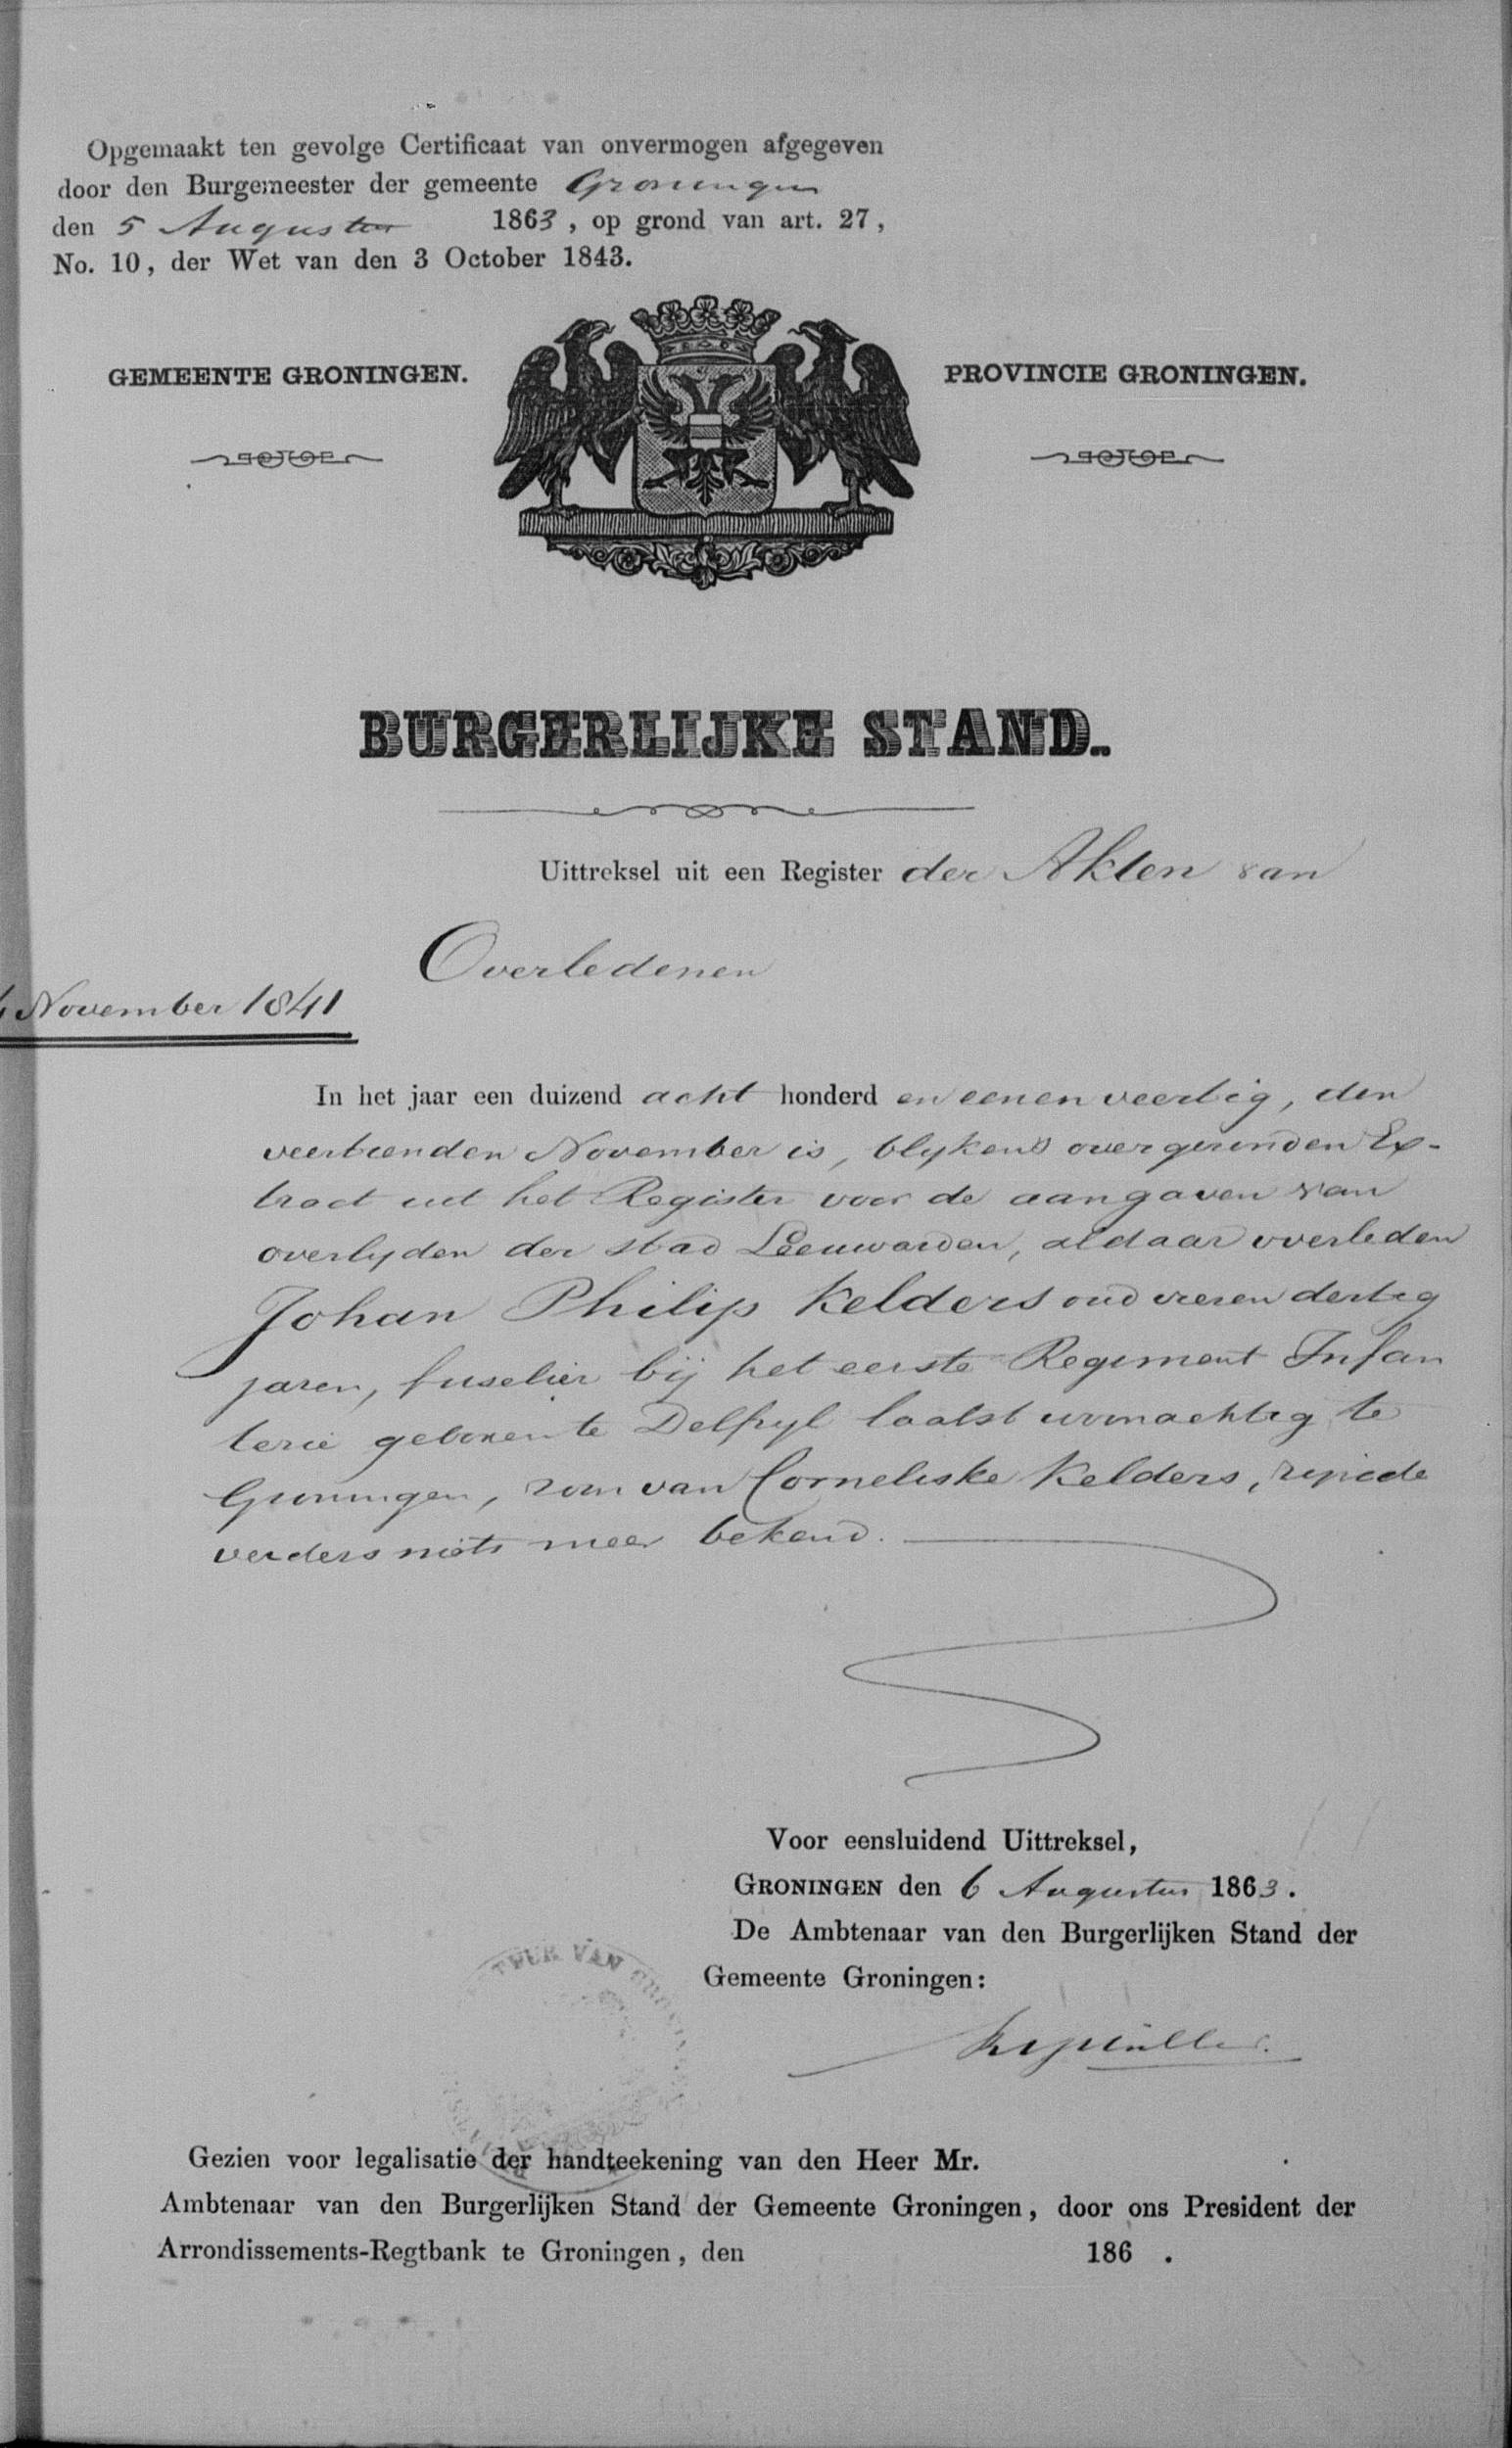 Opgemaakt ten gevolge Certificaat van onvermogen afgegeven
door den Burgemeester der gemeente Groningen
den 5 Augustus 1863, op grond van art. 27,
No. 10, der Wet van den 3 October 1843.
GEMEENTE GRONINGEN.
PROVINCIE GRONINGEN.
BURGERLIJKE STAND.
Uittreksel uit een Register der Akten van
Overledenen
November 1841
In het jaar een duizend acht honderd en eenen veertig, den
veertienden November is, blykens overgezonden Ex-
tract uit het Register voor de aangaven van
overlyden der stad Leeuwarden, aldaar overleden
Johan Philip Kelders oud vieren dertig
jaren, fuselier bij het eerste Regiment Infan
terie geboren te Delfzyl laatst woonachtig te
Groningen, zoon van Corneliske Kelders, zynde
verders niets meer bekend.
Voor eensluidend Uittreksel,
GRONINGEN den 6 Augustus 1863.
De Ambtenaar van den Burgerlijken Stand der
Gemeente Groningen:
Gezien voor legalisatie der handteekening van den Heer Mr.
Ambtenaar van den Burgerlijken Stand der Gemeente Groningen, door ons President der
Arrondissements-Regtbank te Groningen, den 186 .